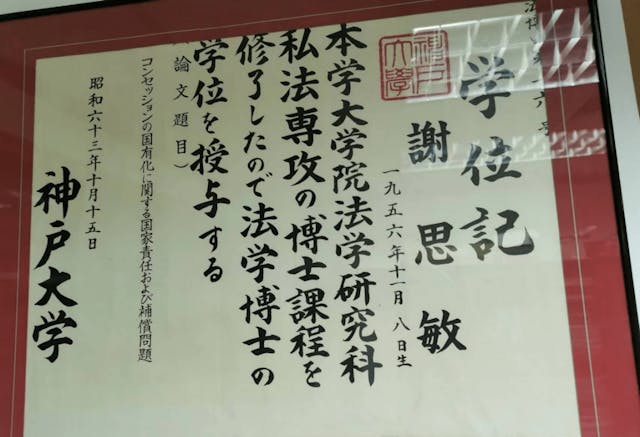 学位記
神戸大学
謝思敏
一九五六年十一月八日生
本学大学院法学研究科
私法専攻の博士課程を
修了したので法学博士の
学位を授与する
論文題目)
コンセッションの国有化に関する国家責任および補償問題
昭和六十三年十月十五日
神戸大学